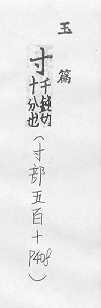 玉篇
寸千鈍切
十分也
(寸部五百十
P408)